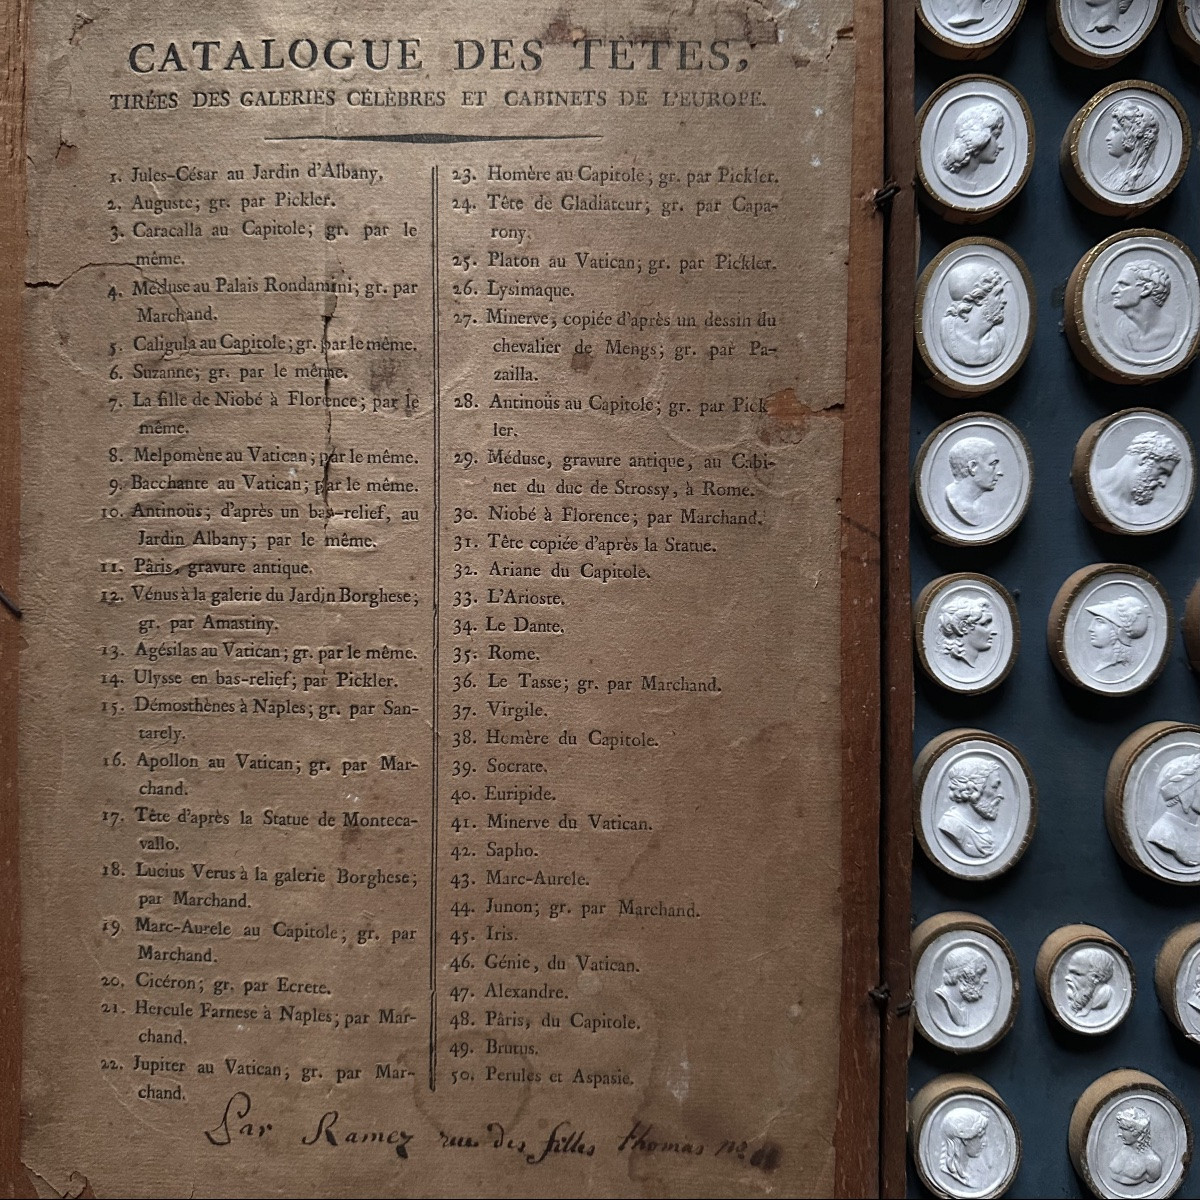 CATALOGUE DES TÈTES,
TIRÉES DES GALERIES CÉLÈBRES ET CABINETS DE L'EUROPE.
1. Jules-César au Jardin d'Albany.
2. Auguste; gr. par Pickler.
3. Caracalla au Capitole; gr. par le
même.
4. Méduse au Palais Rondanini; gr. par
Marchand.
5. Caligula au Capitole; gr. par le même.
6. Suzanne; gr. par le même.
7. La fille de Niobé à Florence; par le
même.
8. Melpomène au Vatican; par le même.
9. Bacchante au Vatican; par le même.
10. Antinoüs; d'après un bas-relief, au
Jardin Albany; par le même.
11. Pâris, gravure antique.
12. Vénus à la galerie du Jardin Borghese;
gr. par Amastiny.
13. Agésilas au Vatican; gr. par le même.
14. Ulysse en bas-relief; par Pickler.
15. Démosthènes à Naples; gr. par San-
tarely.
16. Apollon au Vatican; gr. par Mar-
chand.
17. Tête d'après la Statue de Monteca-
vallo.
18. Lucius Verus à la galerie Borghese;
par Marchand.
19. Marc-Aurele au Capitole; gr. par
Marchand.
20. Cicéron; gr. par Ecrete.
21. Hercule Farnese à Naples; par Mar-
chand.
22. Jupiter au Vatican; gr. par Mar-
chand.
23. Homère au Capitole; gr. par Pickler.
24. Tête de Gladiateur; gr. par Capa-
rony.
25. Platon au Vatican; gr. par Pickler.
26. Lysimaque.
27. Minerve, copiée d'après un dessin du
chevalier de Mengs; gr. par Pa-
zailla.
28. Antinoüs au Capitole; gr. par Pick
ler.
29. Méduse, gravure antique, au Cabi-
net du duc de Strossy, à Rome.
30. Niobé à Florence; par Marchand.
31. Tête copiée d'après la Statue.
32. Ariane du Capitole.
33. L'Arioste.
34. Le Dante.
35. Rome.
36. Le Tasse; gr. par Marchand.
37. Virgile.
38. Homère du Capitole.
39. Socrate.
40. Euripide.
41. Minerve du Vatican.
42. Sapho.
43. Marc-Aurele.
44. Junon; gr. par Marchand.
45. Iris.
46. Génie, du Vatican.
47. Alexandre.
48. Pâris, du Capitole.
49. Brutus.
50. Perules et Aspasie.
Par Ramey rue des filles thomas n°